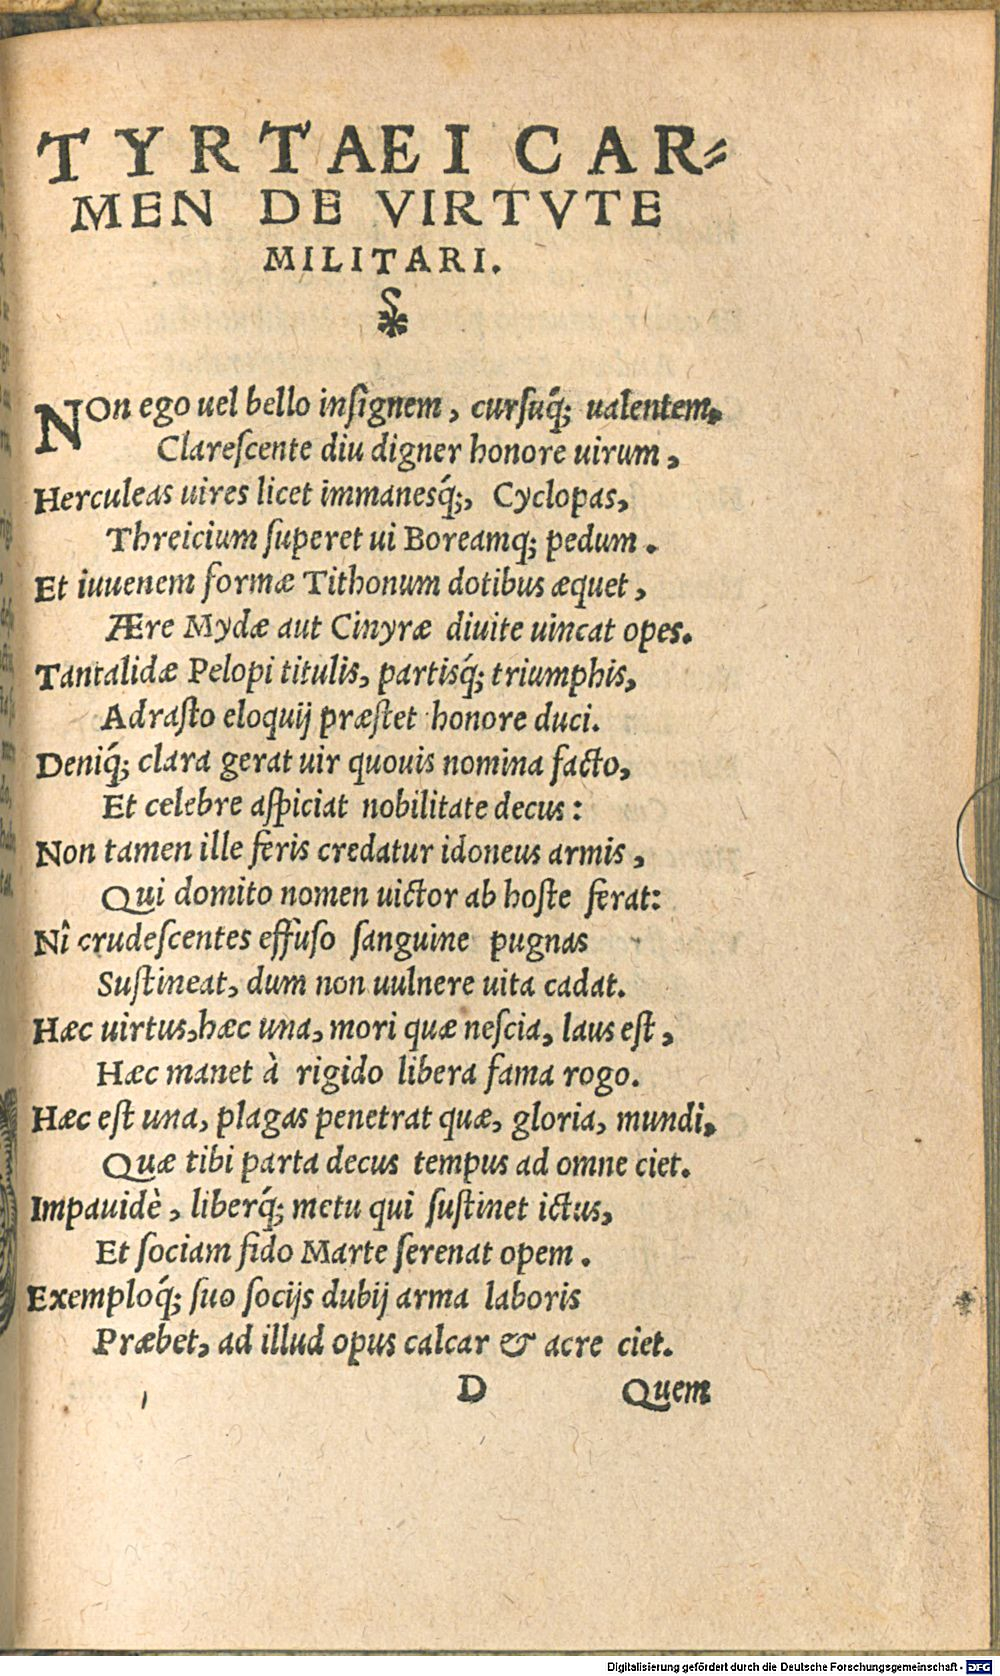 TYRTAEI CAR-
MEN DE VIRTVTE
MILITARI.
NOn ego uel bello insignem, cursuq́; ualentem,
Clarescente diu digner honore uirum,
Herculeas uires licet immanesq́;, Cyclopas,
Threicium superet ui Boreamq; pedum.
Et iuuenem formæ Tithonum dotibus æquet,
Ære Mydæ aut Cinyræ diuite uincat opes.
Tantalidæ Pelopi titulis, partisq́; triumphis,
Adrasto eloquij præstet honore duci.
Deniq́; clara gerat uir quouis nomina facto,
Et celebre aspiciat nobilitate decus:
Non tamen ille feris credatur idoneus armis,
Qui domito nomen uictor ab hoste ferat:
Nî crudescentes effuso sanguine pugnas
Sustineat, dum non uulnere uita cadat.
Hæc uirtus, hæc una, mori quæ nescia, laus est,
Hæc manet à rigido libera fama rogo.
Hæc est una, plagas penetrat quæ, gloria, mundi,
Quæ tibi parta decus tempus ad omne ciet.
Impauidè, liberq́; metu qui sustinet ictus,
Et sociam fido Marte serenat opem.
Exemploq́; suo socijs dubij arma laboris
Præbet, ad illud opus calcar & acre ciet.
D Quem
Digitalisierung gefördert durch die Deutsche Forschungsgemeinschaft - DFG